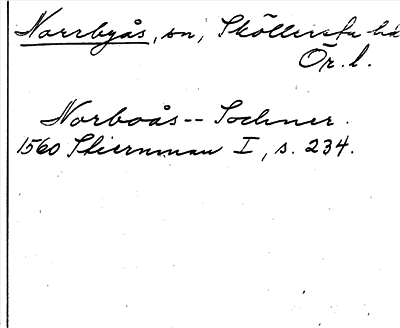 Norrbyås, sn, Sköllersta hd
Ör. l.
Norboås -- Sochner.
1560 Stiernman I, s. 234.